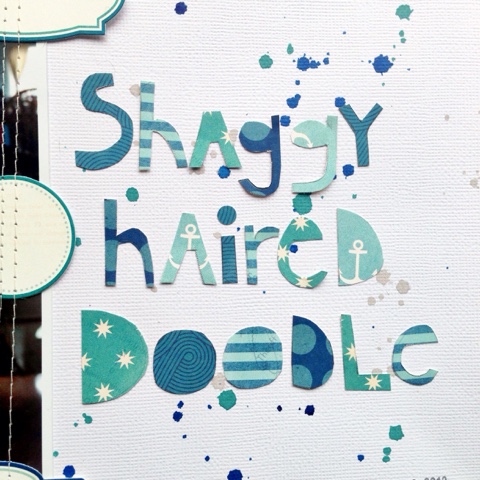 ShAggY
hAireD
DOODLe